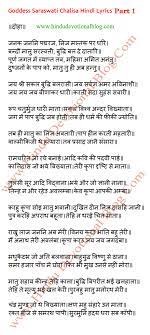 Goddess Saraswati Chalisa Hindi Lyrics Part 1
www.hindudevotionalblog.com
॥दोहा॥
जनक जननि पद्मरज, निज मस्तक पर धरि।
बन्दौं मातु सरस्वती, बुद्धि बल दे दातारि॥
पूर्ण जगत में व्याप्त तव, महिमा अमित अनंतु।
दुष्जनों के पाप को, मातु तु ही अब हन्तु॥
जय श्री सकल बुद्धि बलरासी।जय सर्वज्ञ अमर अविनाशी॥
जय जय जय वीणाकर धारी।करती सदा सुहंस सवारी॥
रूप चतुर्भुज धारी माता।सकल विश्व अन्दर विख्याता॥
जग में पाप बुद्धि जब होती।तब ही धर्म की फीकी ज्योति॥
तब ही मातु का निज अवतारी।पाप हीन करती महतारी॥
वाल्मीकिजी थे हत्यारा।तव प्रसाद जानै संसारा॥
रामचरित जो रचे बनाई।आदि कवि की पदवी पाई॥
कालिदास जो भये विख्याता।तेरी कृपा दृष्टि से माता॥
तुलसी सूर आदि विद्वाना।भये और जो ज्ञानी नाना॥
तिन्ह न और रहेउ अवलम्बा।केव कृपा आपकी अम्बा॥
करहु कृपा सोइ मातु भवानी।दुखित दीन निज दासहि जानी॥
पुत्र करहिं अपराध बहूता।तेहि न धरई चित माता॥
राखु लाज जननि अब मेरी।विनय करउं भांति बहु तेरी॥
मैं अनाथ तेरी अवलंबा।कृपा करउ जय जय जगदंबा॥
मधुकैटभ जो अति बलवाना।बाहुयुद्ध विष्णु से ठाना॥
समर हजार पाँच में घोरा।फिर भी मुख उनसे नहीं मोरा॥
मातु सहाय कीन्ह तेहि काला।बुद्धि विपरीत भई खलहाला॥
तेहि ते मृत्यु भई खल केरी।पुरवहु मातु मनोरथ मेरी॥
चंड मुण्ड जो थे विख्याता।क्षण महु संहारे उन माता॥